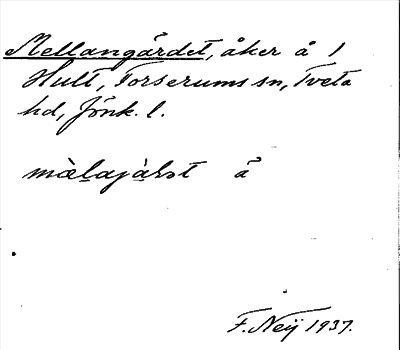 Mellangärdet, åker å 1
Hult, Torserums sn, Tveta
hd, Jönk. l.
å
F. Neij 1937.